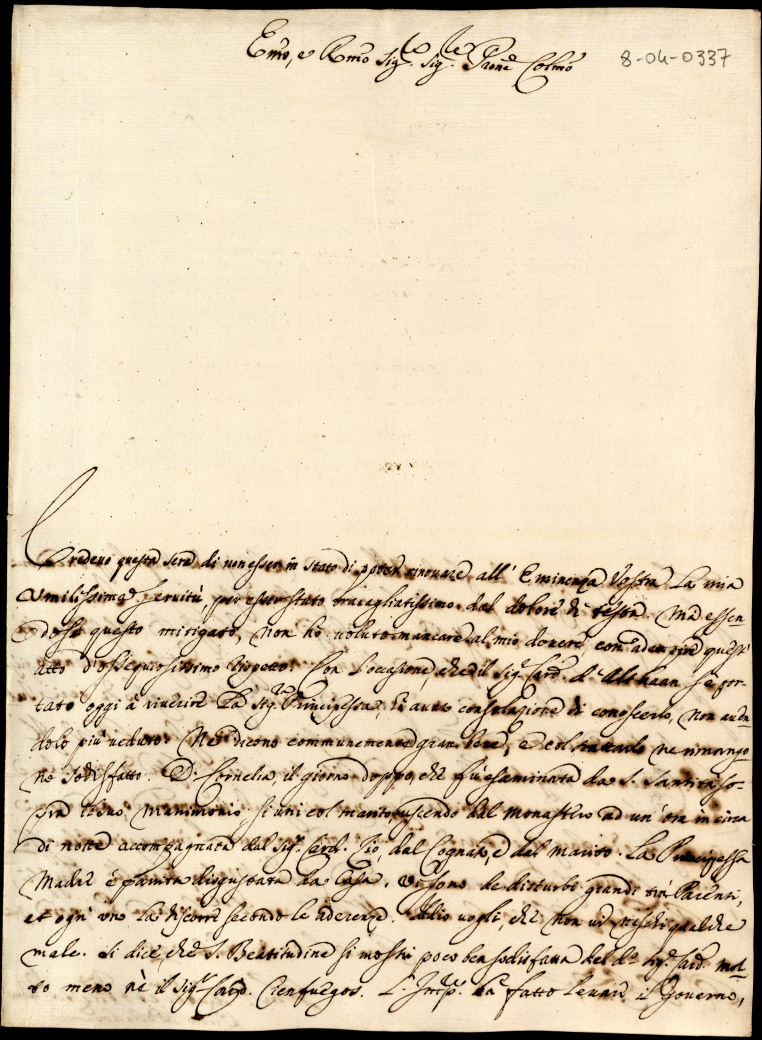 Emo, e Rmo Sigr. Sigr. Prone Colmo
8-04-0337
Credevo questa sera di non esser in stato di poter rinovare all' Eminenza Vostra la mia
Umilissima servitù, per esser stato travagliatissimo dal dolore di testa. Ma essen
dosi questo mitigato, non ho voluto mancare al mio dovere con adempire quest'
atto d'ossequiosissimo rispetto. Con l'occasione, che il Sigr. Card. d'Althaan s'è por-
tato oggi à riverire la Sigra. Principessa, hò auuto consolazione di conoscerlo, non auen
dolo più veduto. Ne dicono communemente gran bene, e col trattarlo ne rimango
no sodisfatto. D. Cornelia, il giorno doppo, che fù esaminata da S. Santità so-
pra il suo Matrimonio, si unì col marito, uscendo dal Monastero ad un' ora in circa
di notte accompagnata dal Sigr. Card. Zio, dal Cognato, e dal marito. La Principessa
Madre è partita disgustata da Casa. Vi sono de disturbi grandi tra Parenti,
et ogn' uno la discorre secondo le aderenze. Iddio vogli, che non vi meschi qualche
male. Si dice, che S. Beatitudine si mostri poco ben sodisfatta del do. Sigr. Card. mol
to meno nè il Sigr. Card. Cienfuegos. L' ha fatto levare il Governo,